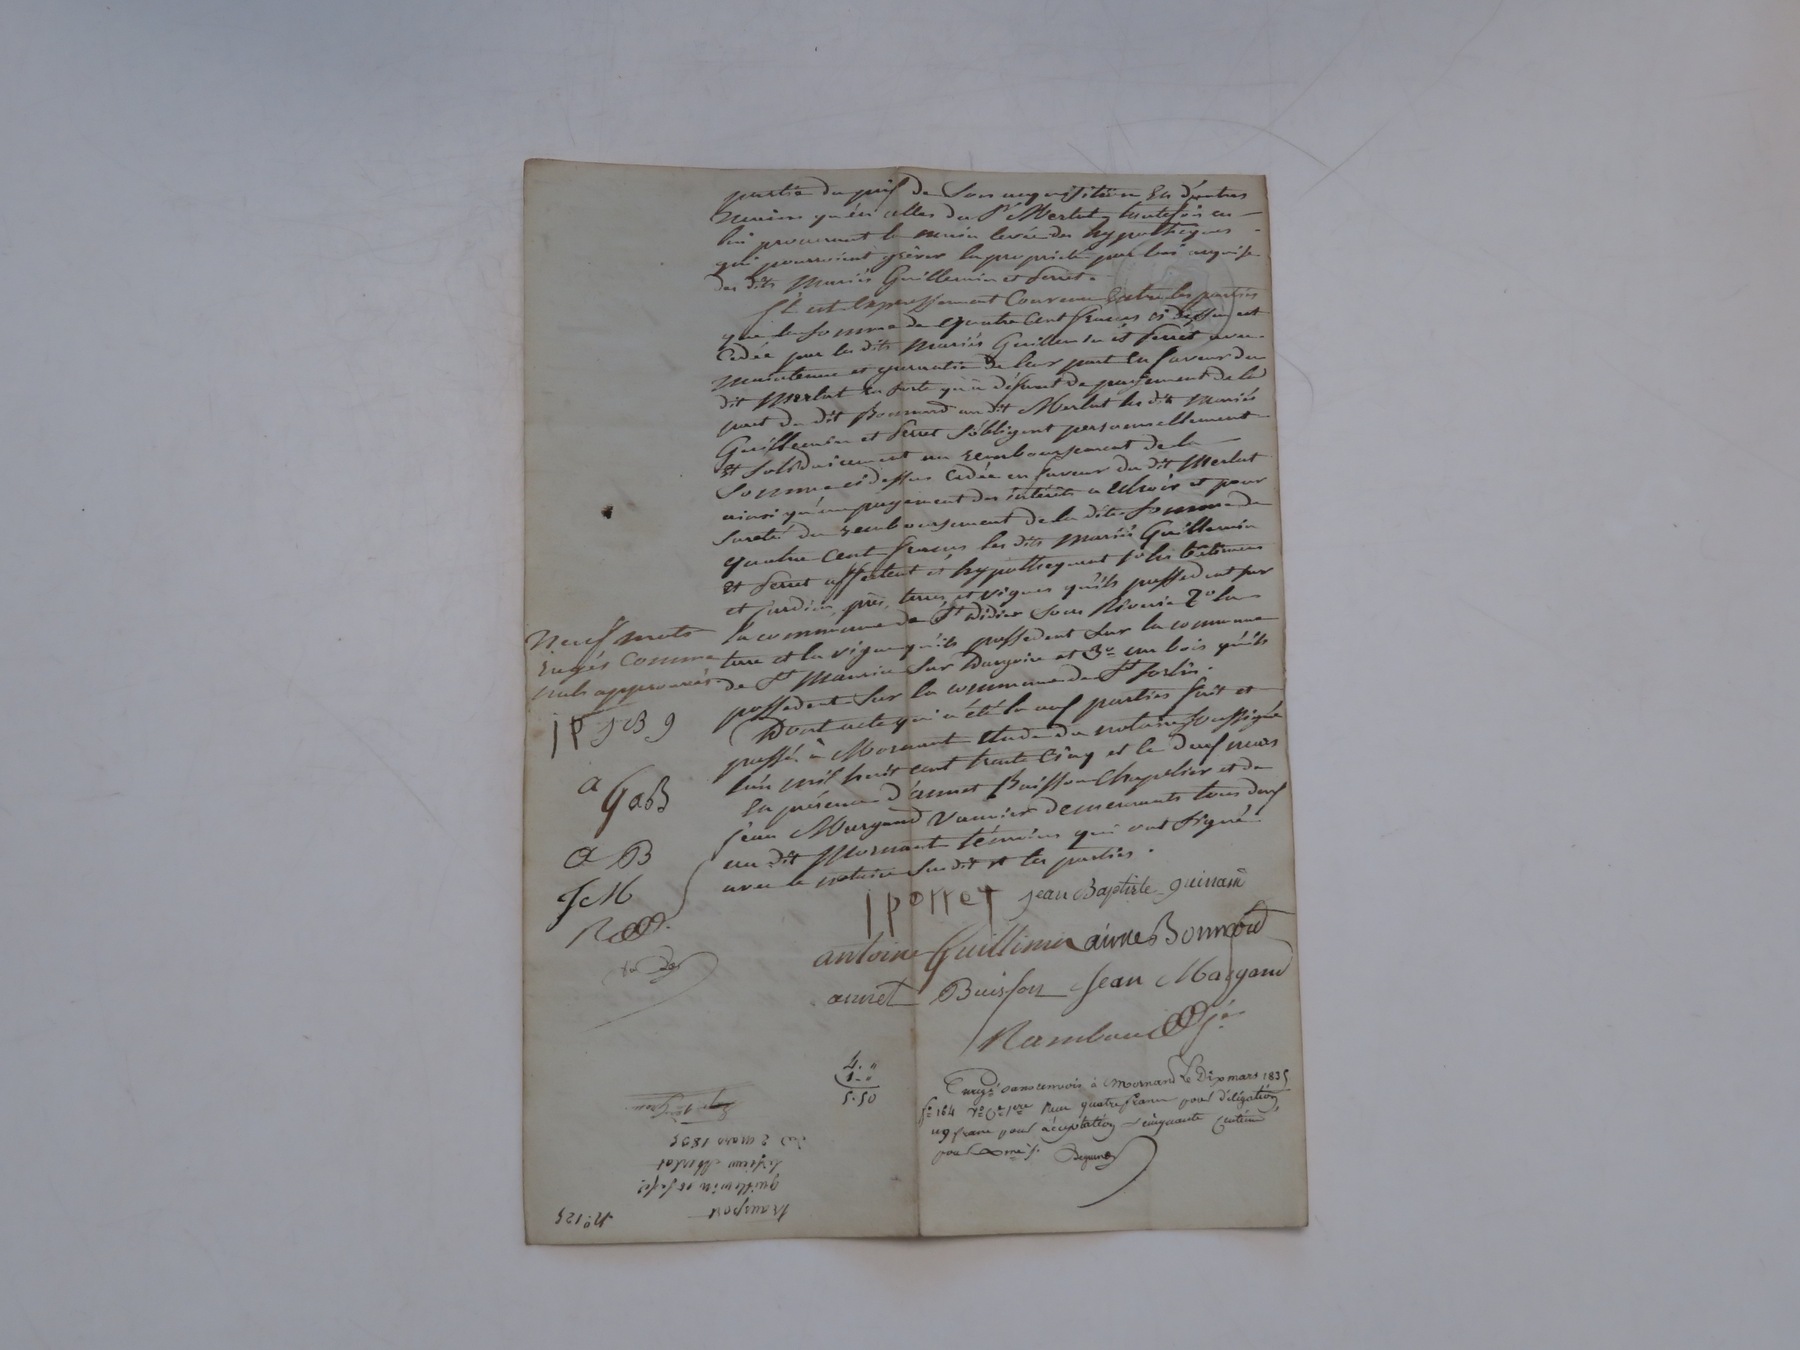 partie du prix de son acquisition en d'autres
mains qu'en celles du Sr Merlat, toutefois en
lui procurant la main levée des hypothèques
qui pourroient grèver la propriété par lui acquise
des dits Mariés Guillermin et ferret.
Il est expressement Convenu Entre les parties
que la somme de quatre Cent francs ci dessus est
Cedée par les dits Mariés Guillermin et ferret avec
maintenue et garantie de leur part en faveur du
dit Merlat En sorte qu'à défaut de payement de la
part du dit Bonnard au dit Merlat les dits Mariés
Guillermin et ferret s'obligent personnellement
Et solidairement au remboursement de la
Somme ci dessus Cedée en faveur du dit Merlat
ainsi qu'au payement des intérêts a Echoir et pour
sureté du remboursement de la dite Somme de
quatre Cent francs les dits Mariés Guillermin
Et ferret affectent et hypothequent 1o les bâtimens
et jardin, près, terres et vignes qu'ils possedent sur
la commune de St Didier sous Riverie 2o la
terre et la vigne qu'ils possedent sur la commune
de St Maurice sur Dargoire et 3o un bois qu'ils
possedent sur la commune de St Sorlin.
Dont acte qui a été lu aux parties fait et
passé à Mornant Etude du notaire soussigné
l'an mil huit cent trente Cinq et le deux mars
En présence d'annet Buisson Chapelier et de
jean Margand Vannier demeurants tous deux
au dit Mornant témoins qui ont signé
avec le notaire susdit et les parties.
Neuf mots
rayés Comme
nuls approuvés
J P J B g
a G a B
a B
J M
R
J porret jean Baptiste guinand
antoine Guillermin aimé Bonnard
annet Buisson Jean Margand
Rambaud
4. "
1. "
5.50
Enregé sans renvoi à Mornant Le Dix mars 1835
fo 164 Vo Ce 1ere Reçu quatre francs pour délégation
un franc pour acceptation cinquante centimes
pour
No 125
transport
guillermin et ferret
à sieur Merlat
du 2 mars 1835